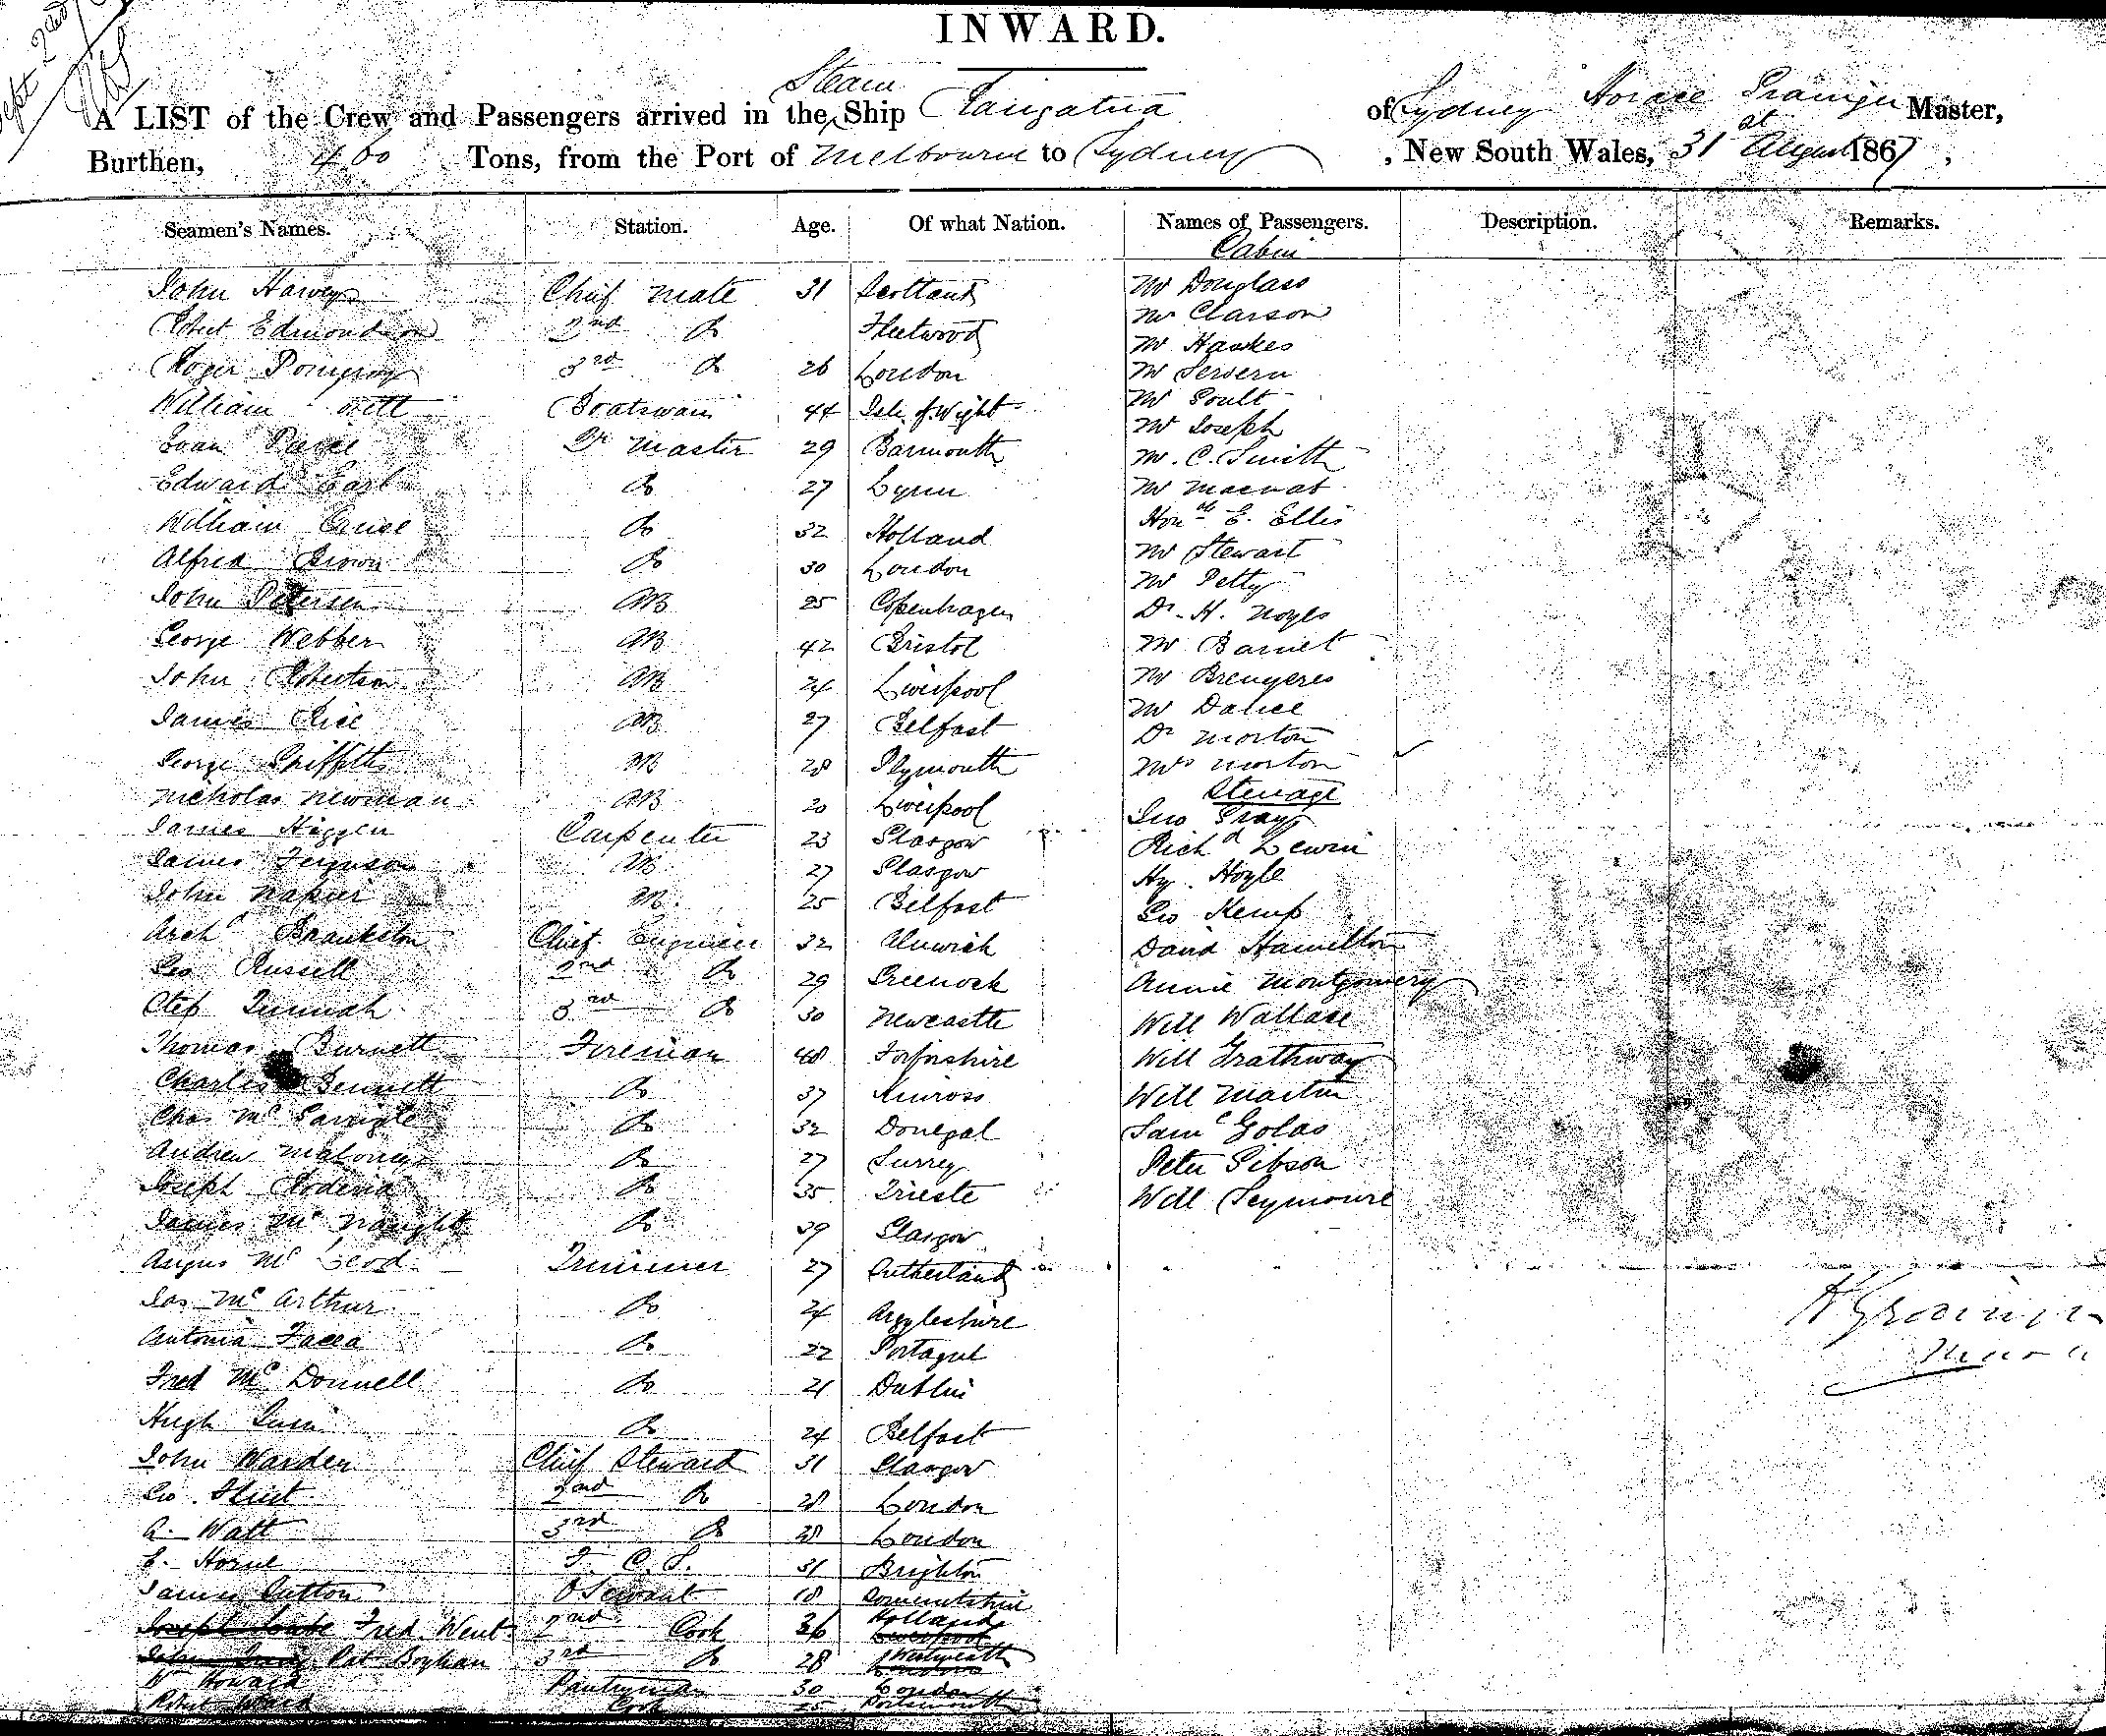 Sept 2nd
INWARD.
Steam
A LIST of the Crew and Passengers arrived in the Ship Rangatira of Sydney Horace Grainger Master,
Burthen, 460 Tons, from the Port of Melbourne to Sydney, New South Wales, 31st August 1867,
Seamen's Names. Station. Age. Of what Nation. Names of Passengers. Description. Remarks.
Cabin
John Harvey Chief mate 31 Scotland Mr Douglass
Robert Edmondson 2nd Do Fleetwood Mr Clarson
Roger Pomeroy 3rd Do 26 London Mr Hawkes
William Boatswain 44 Isle of Wight Mr Severn
Mr Poult
Evan Qr master 29 Barmouth Mr Joseph
Edward Earl Do 27 Lynn Mr C. Smith
William Cruse Do 32 Holland Mr Macnab
Honble E. Ellis
Alfred Brown Do 30 London Mr Stewart
John Petersen AB 25 Copenhagen Mr Petty
George Webber AB 42 Bristol Dr H. Noyes
John Robertson AB 24 Liverpool Mr Barnet
Mr Brewyeres
James Rice AB 27 Belfast Mr Dance
George Griffiths AB 28 Plymouth Dr Morton
Mrs Morton
Nicholas Newman AB 20 Liverpool Steerage
James Higgen Carpenter 23 Glasgow Jno Gray
James Ferguson AB 27 Glasgow Richd Lewin
John Napier AB 25 Belfast Hy. Hoyle
Geo Kemp
Archd Brankston Chief Engineer 32 Alnwick David Hamilton
Geo Russell 2nd Do 29 Greenock Annie Montgomery
Step 3rd Do 30 Newcastle Will Wallace
Thomas Burnett Fireman 48 Forfarshire Will Grathway
Charles Bennett Do 37 Kinross Will Martin
Chas McGarrigle Do 32 Donegal Saml Golas
Andrew Maloney Do 27 Surrey Peter Gibson
Joseph Roderia Do 35 Trieste Will Seymoure
James McNaught Do 39 Glasgow
Angus McLeod Trimmer 27 Sutherland
Jas McArthur Do 24 Argyleshire
Antonia Facca Do 22 Portagul
Fred McDonnell Do 21 Dublin
Hugh Do 24 Belfast
John Warden Chief Steward 31 Glasgow
Geo. Street 2nd Do 28 London
A. Watt 3rd Do 28 London
E. Horne F. C. S. 31 Brighton
James Sutton O Servant 18
Fred Went 2nd Cook 36 Holland
Pat Boylan 3rd Do 28 Westmeath
W Howard Pantryman 30 London
Robert Ward Cook 25 Portsmouth
H Grainger